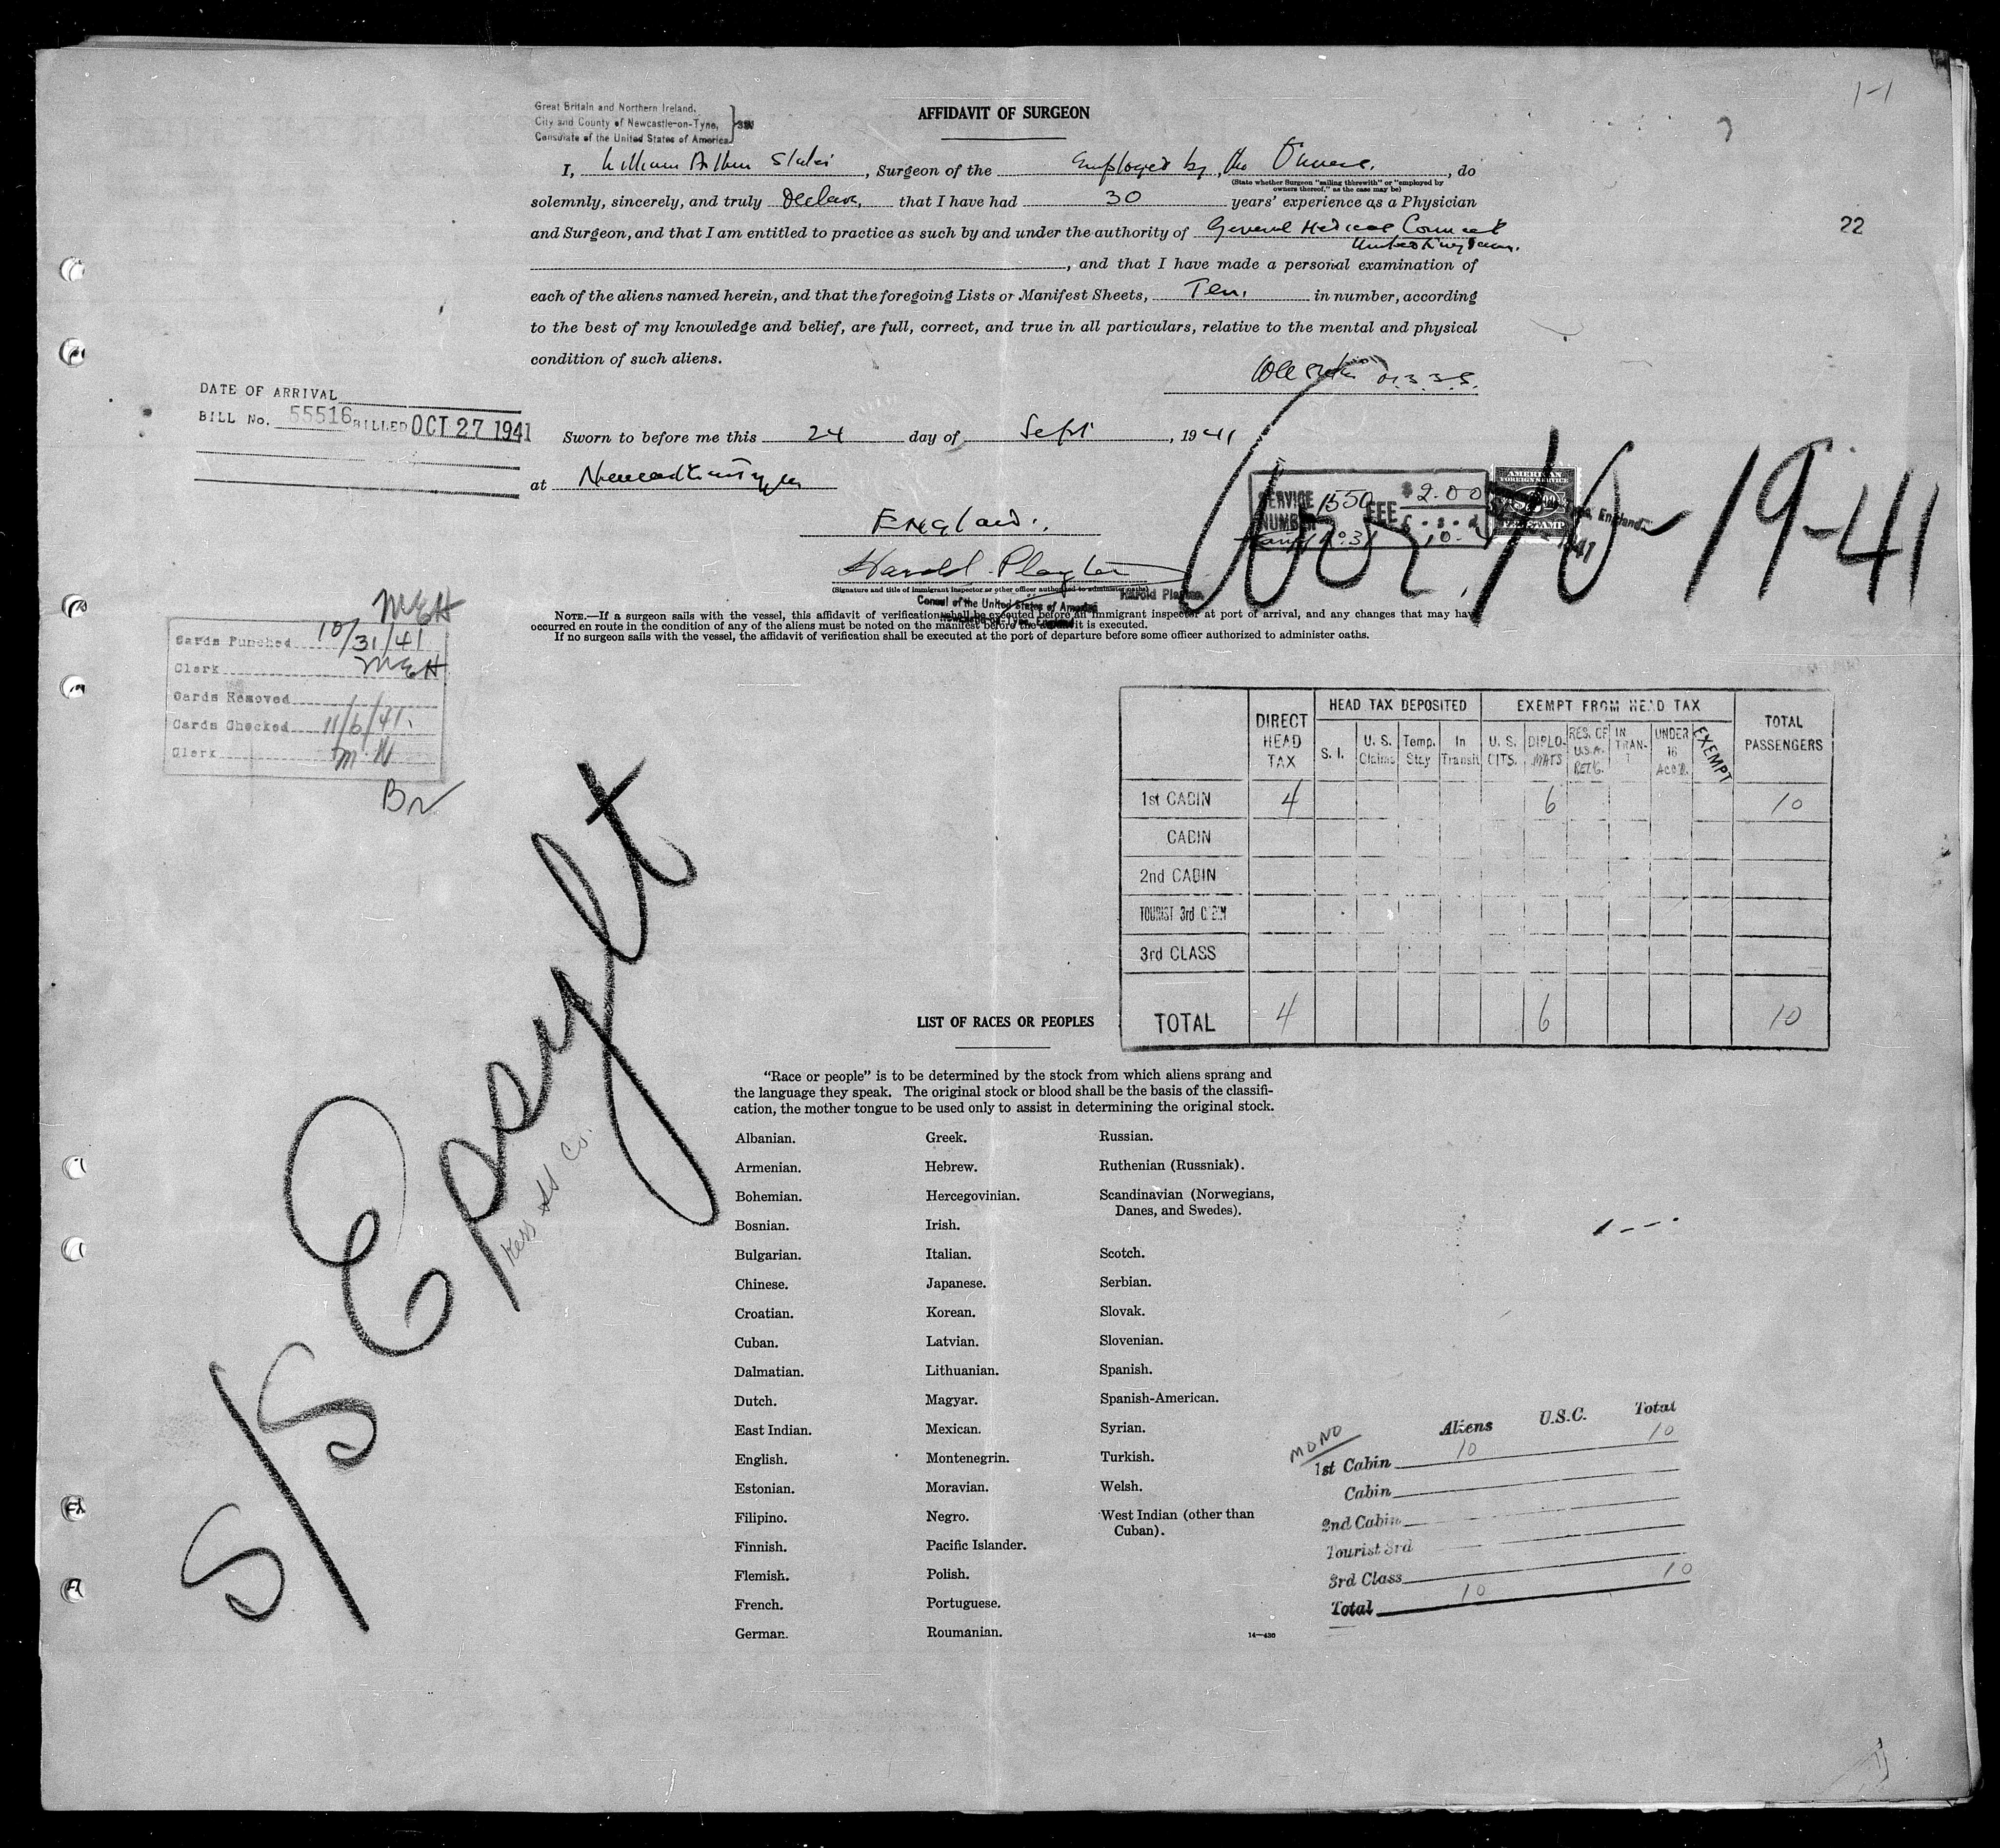 1-1
Great Britain and Northern Ireland,
City and County of Newcastle-on-Tyne,
Consulate of the United States of America
AFFIDAVIT OF SURGEON
I, William Arthur, Surgeon of the Employed by the Owners., do
(State whether Surgeon "sailing therewith" or "employed by
owners thereof," as the case may be)
solemnly, sincerely, and truly Declare, that I have had 30 years' experience as a Physician
22
and Surgeon, and that I am entitled to practice as such by and under the authority of General Medical Council
United Kingdom.
, and that I have made a personal examination of
each of the aliens named herein, and that the foregoing Lists or Manifest Sheets, Ten. in number, according
to the best of my knowledge and belief, are full, correct, and true in all particulars, relative to the mental and physical
condition of such aliens.
DATE OF ARRIVAL
BILL No. 55516 BILLED OCT 27 1941
Sworn to before me this 24 day of Sept, 1941
at Newcastle on Tyne
England.
SERVICE NUMBER 1550 FEE $2.00
£ - s - d
10. -
AMERICAN
FOREIGN SERVICE
FEE STAMP
10-19-41
Harold Playter
(Signature and title of immigrant inspector or other officer authorized to administer oaths)
Consul of the United States of America
Harold Playter
Newcastle-on-Tyne, England
NOTE.—If a surgeon sails with the vessel, this affidavit of verification shall be executed before an immigrant inspector at port of arrival, and any changes that may have
occurred en route in the condition of any of the aliens must be noted on the manifest before the affidavit is executed.
If no surgeon sails with the vessel, the affidavit of verification shall be executed at the port of departure before some officer authorized to administer oaths.
MEH
Cards Punched 10/31/41
Clerk MEH
Cards Removed
Cards Checked 11/6/41.
Clerk M.N
DIRECT HEAD TAX
HEAD TAX DEPOSITED
EXEMPT FROM HEAD TAX
TOTAL PASSENGERS
S. I. U. S. Claims Temp. Stay In Transit U. S. CITS. DIPLO-MATS RES. OF U.S.A. RET'G. IN TRAN- T UNDER 16 ACC'D. EXEMPT
1st CABIN 4 6 10
CABIN
2nd CABIN
TOURIST 3rd CABIN
3rd CLASS
TOTAL 4 6 10
S/S Epsylt
Kess SS Co.
LIST OF RACES OR PEOPLES
"Race or people" is to be determined by the stock from which aliens sprang and
the language they speak. The original stock or blood shall be the basis of the classifi-
cation, the mother tongue to be used only to assist in determining the original stock.
Albanian.
Armenian.
Bohemian.
Bosnian.
Bulgarian.
Chinese.
Croatian.
Cuban.
Dalmatian.
Dutch.
East Indian.
English.
Estonian.
Filipino.
Finnish.
Flemish.
French.
German.
Greek.
Hebrew.
Hercegovinian.
Irish.
Italian.
Japanese.
Korean.
Latvian.
Lithuanian.
Magyar.
Mexican.
Montenegrin.
Moravian.
Negro.
Pacific Islander.
Polish.
Portuguese.
Roumanian.
Russian.
Ruthenian (Russniak).
Scandinavian (Norwegians,
Danes, and Swedes).
Scotch.
Serbian.
Slovak.
Slovenian.
Spanish.
Spanish-American.
Syrian.
Turkish.
Welsh.
West Indian (other than
Cuban).
14—430
MONO
Aliens U.S.C. Total
1st Cabin 10 10
Cabin
2nd Cabin
Tourist 3rd
3rd Class
Total 10 10